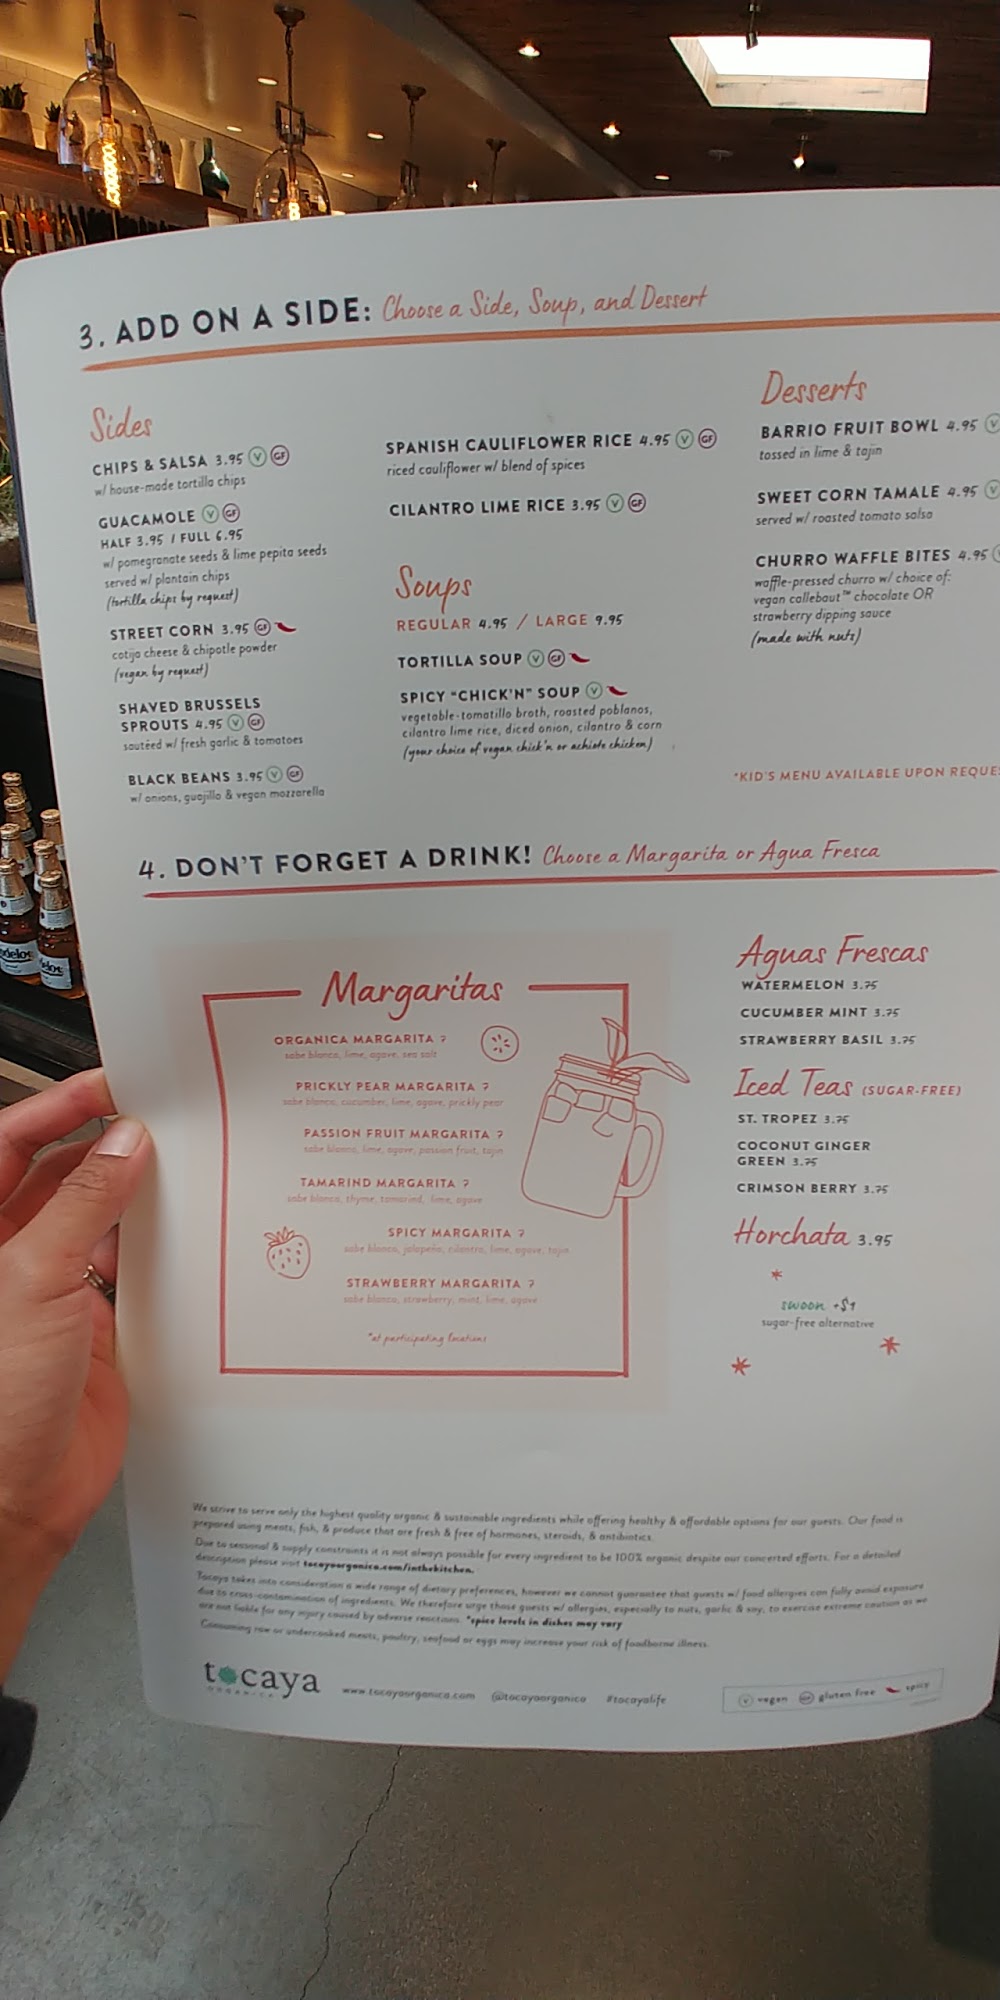 3. ADD ON A SIDE: Choose a Side, Soup, and Dessert
Sides
CHIPS & SALSA 3.95 V GF
w/ house-made tortilla chips
GUACAMOLE V GF
HALF 3.95 / FULL 6.95
w/ pomegranate seeds & lime pepita seeds
served w/ plantain chips
(tortilla chips by request)
STREET CORN 3.95 GF
cotija cheese & chipotle powder
(vegan by request)
SHAVED BRUSSELS
SPROUTS 4.95 V GF
sautéed w/ fresh garlic & tomatoes
BLACK BEANS 3.95 V GF
w/ onions, guajillo & vegan mozzarella
SPANISH CAULIFLOWER RICE 4.95 V GF
riced cauliflower w/ blend of spices
CILANTRO LIME RICE 3.95 V GF
Soups
REGULAR 4.95 / LARGE 9.95
TORTILLA SOUP V GF
SPICY "CHICK'N" SOUP V
vegetable-tomatillo broth, roasted poblanos,
cilantro lime rice, diced onion, cilantro & corn
(your choice of vegan chick'n or achiote chicken)
Desserts
BARRIO FRUIT BOWL 4.95 V
tossed in lime & tajin
SWEET CORN TAMALE 4.95 V
served w/ roasted tomato salsa
CHURRO WAFFLE BITES 4.95
waffle-pressed churro w/ choice of:
vegan callebaut™ chocolate OR
strawberry dipping sauce
(made with nuts)
*KID'S MENU AVAILABLE UPON REQUE
4. DON'T FORGET A DRINK! Choose a Margarita or Agua Fresca
Margaritas
ORGANICA MARGARITA 7
sabe blanco, lime, agave, sea salt
PRICKLY PEAR MARGARITA 7
sabe blanco, cucumber, lime, agave, prickly pear
PASSION FRUIT MARGARITA 7
sabe blanco, lime, agave, passion fruit, tajin
TAMARIND MARGARITA 7
sabe blanco, thyme, tamarind, lime, agave
SPICY MARGARITA 7
sabe blanco, jalapeño, cilantro, lime, agave, tajin
STRAWBERRY MARGARITA 7
sabe blanco, strawberry, mint, lime, agave
*at participating locations
Aguas Frescas
WATERMELON 3.75
CUCUMBER MINT 3.75
STRAWBERRY BASIL 3.75
Iced Teas (SUGAR-FREE)
ST. TROPEZ 3.75
COCONUT GINGER
GREEN 3.75
CRIMSON BERRY 3.75
Horchata 3.95
swoon +$1
sugar-free alternative
We strive to serve only the highest quality organic & sustainable ingredients while offering healthy & affordable options for our guests. Our food is
prepared using meats, fish, & produce that are fresh & free of hormones, steroids, & antibiotics.
Due to seasonal & supply constraints it is not always possible for every ingredient to be 100% organic despite our concerted efforts. For a detailed
description please visit tocayaorganica.com/inthekitchen.
Tocaya takes into consideration a wide range of dietary preferences, however we cannot guarantee that guests w/ food allergies can fully avoid exposure
due to cross-contamination of ingredients. We therefore urge those guests w/ allergies, especially to nuts, garlic & soy, to exercise extreme caution as we
are not liable for any injury caused by adverse reactions. *spice levels in dishes may vary
Consuming raw or undercooked meats, poultry, seafood or eggs may increase your risk of foodborne illness.
tocaya
ORGANICA
www.tocayaorganica.com @tocayaorganica #tocayalife
V vegan GF gluten free spicy